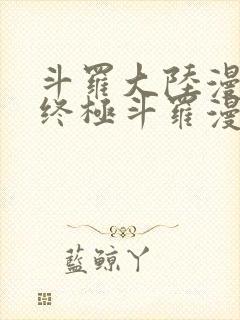 斗羅大陸漫
終極斗羅漫
藍鯨丫